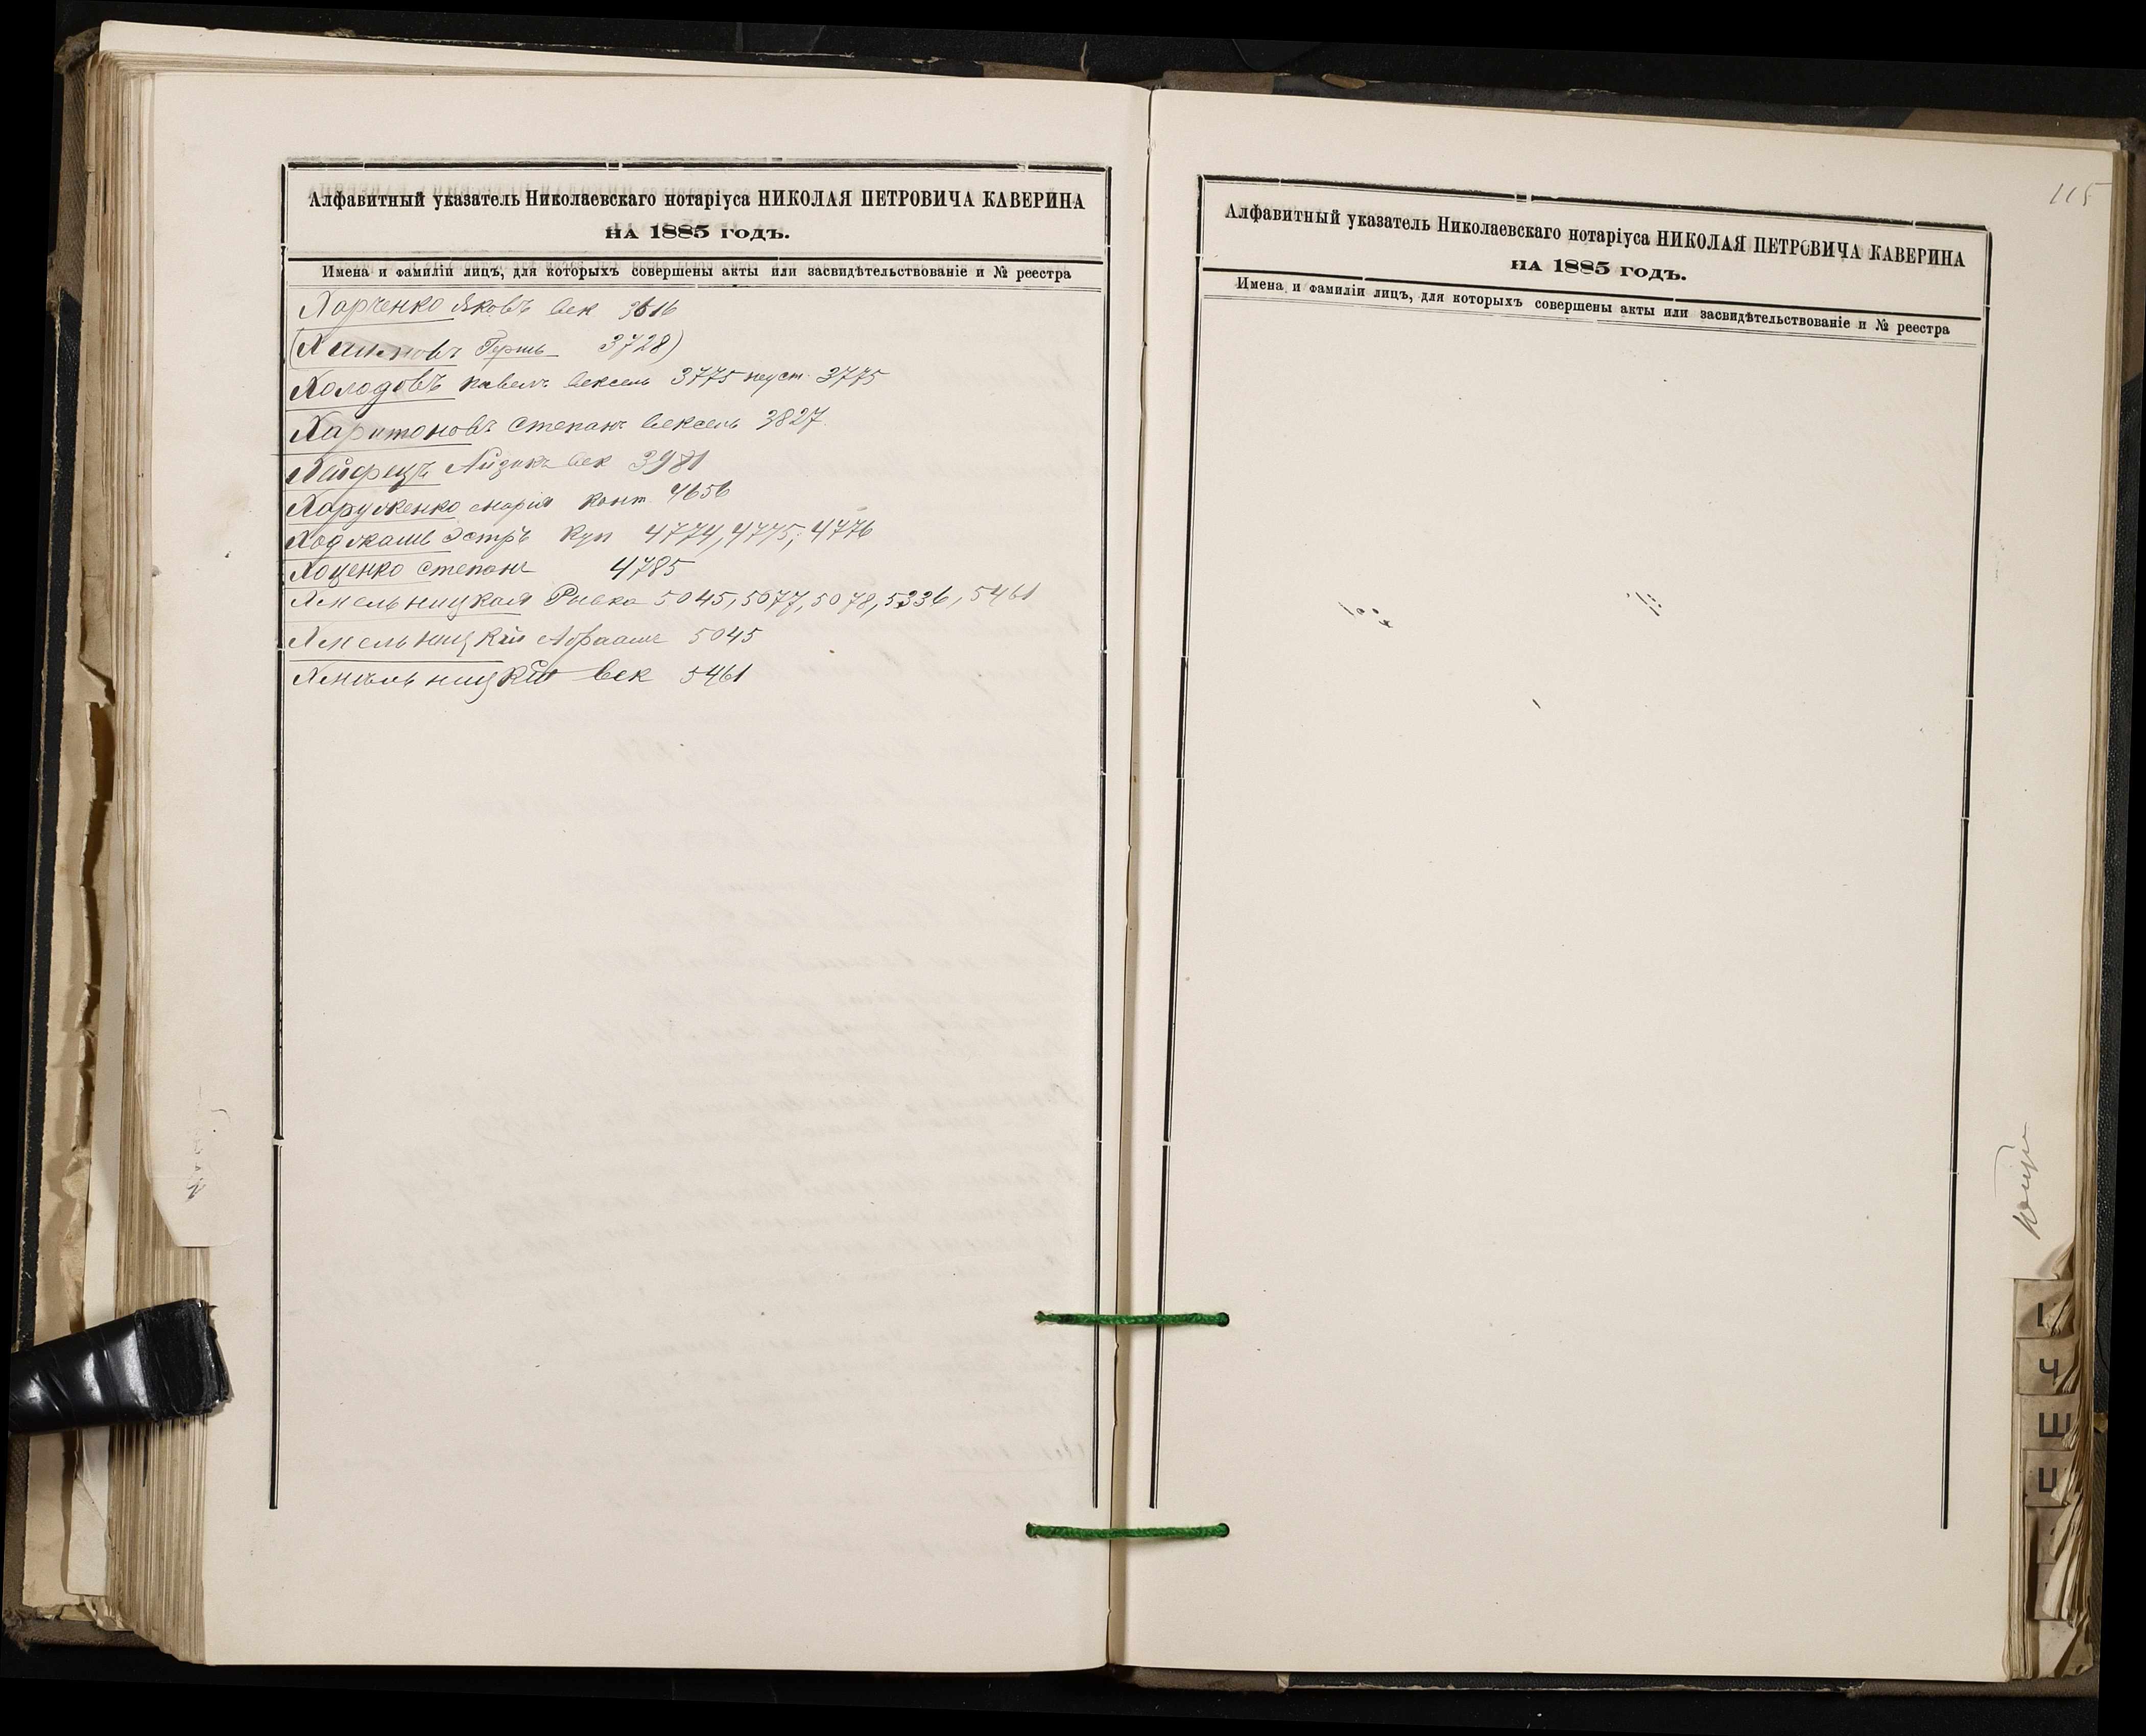 Алфавитный указатель Николаевскаго нотаріуса НИКОЛАЯ ПЕТРОВИЧА КАВЕРИНА
НА 1885 ГОДЪ.
Имена и фамиліи лицъ, для которыхъ совершены акты или засвидѣтельствованіе и № реестра
Харченко Яковъ век 3616
Гершъ 3728)
Холодовъ павелъ вексель 3775 неуст. 3775
Харитоновъ Степанъ вексель 3827
Хейфецъ Айзикъ век 3981
Харуженко Марія Конт. 4656
Ходжашъ Эстръ Куп 4774, 4775, 4776
Хоценко Степанъ 4785
Хмельницкая Ривка 5045, 5077, 5078, 5336, 5461
Хмельницкій Абраамъ 5045
Хмельницкій век 5461
115
Алфавитный указатель Николаевскаго нотаріуса НИКОЛАЯ ПЕТРОВИЧА КАВЕРИНА
НА 1885 ГОДЪ.
Имена и фамиліи лицъ, для которыхъ совершены акты или засвидѣтельствованіе и № реестра
Ч
Ш